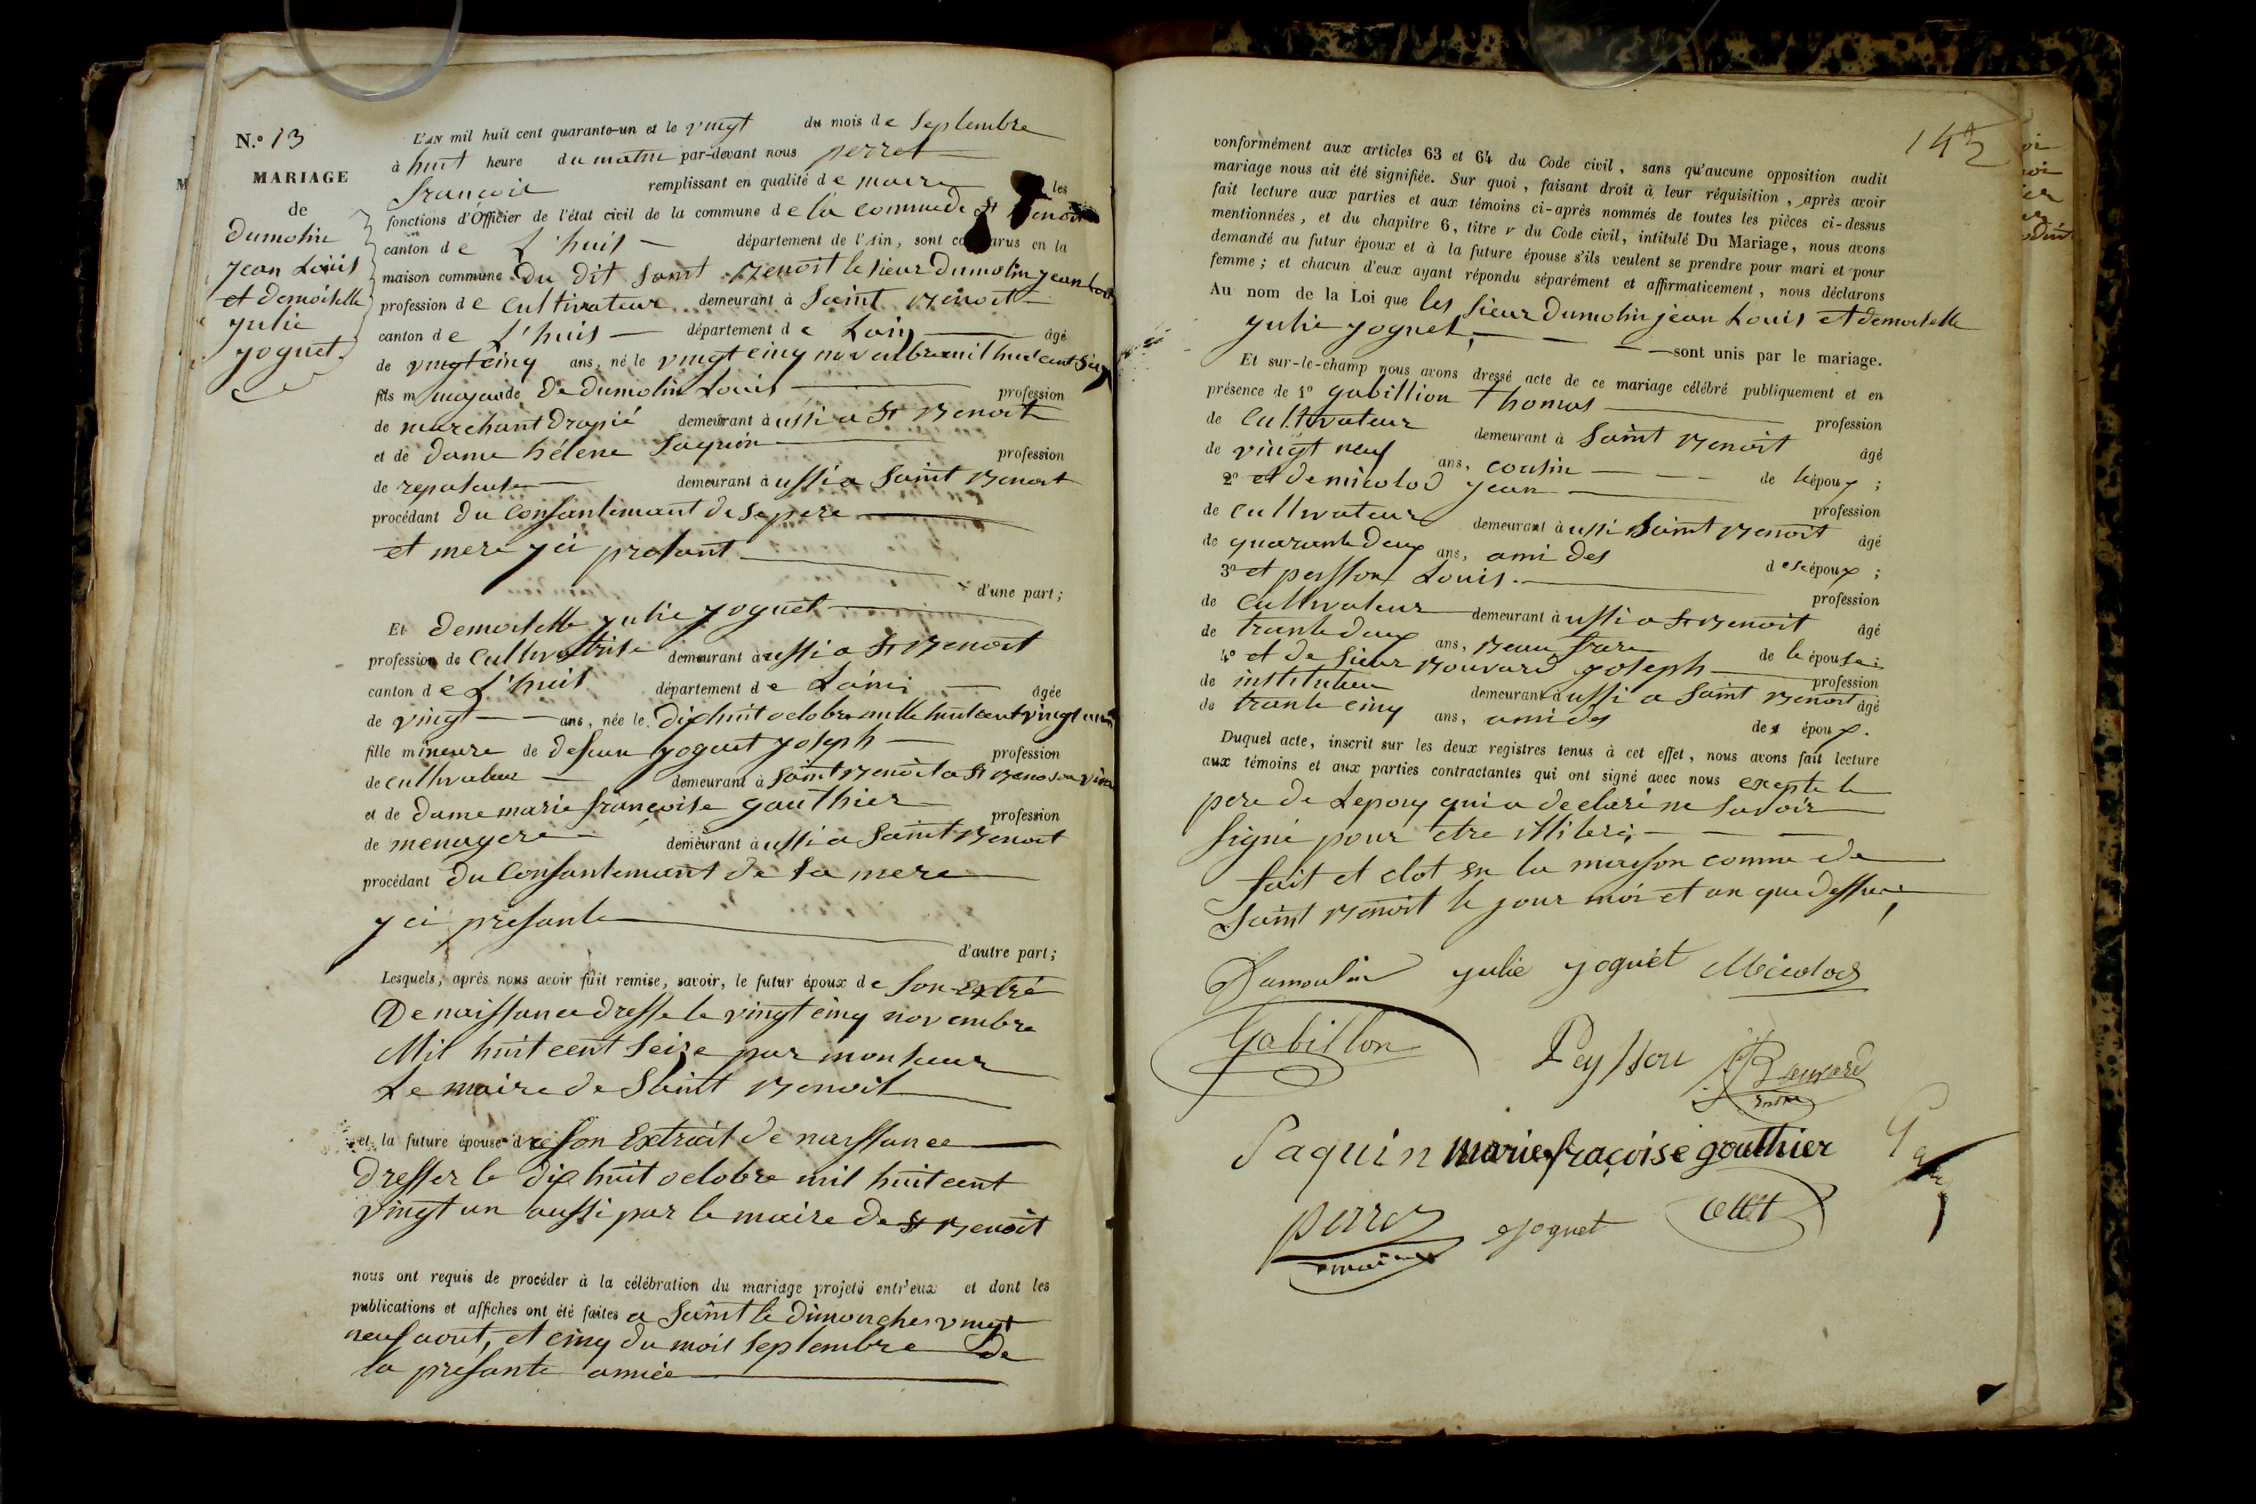 N.º 13
MARIAGE
de
dumolin
jean Louis
et demoiselle
julie
joguet.
L'AN mil huit cent quarante-un et le vingt du mois de Septembre
à huit heure du matin par-devant nous perret
françois remplissant en qualité de maire les
fonctions d'Officier de l'état civil de la commune de la commude St Benoit
canton de L'huis département de l'Ain, sont comparus en la
maison commune du dit Saint Benoit le sieur Dumolin jean Louis
profession de cultivateur demeurant à Saint Benoit
canton de L'huis département de Lain âgé
de vingt cinq ans, né le vingt cinq novembre mil huit cent
fils majeur de De dumolin Louis profession
de marchant drapié demeurant à ussi a St Benoit
et de dame hélene Saquin profession
de demeurant à ussi a Saint Benoit
procédant du Consantemant de se pere
et mere y ci presant
d'une part;
Et demoiselle julie joguet
profession de Cultivatrise demeurant à ussi a St Benoit
canton de L'huis département de Lain âgée
de vingt ans, née le dix huit octobre mille huit cent vingt un
fille mineure de defeun joguet joseph profession
de cultivateur demeurant à Saint Benoit a St Beno
et de dame marie françoise gauthier profession
de menagere demeurant à ussi a Saint Benoit
procédant du Consantemant de sa mere
y ci presante
d'autre part;
Lesquels, après nous avoir fait remise, savoir, le futur époux de son Extré
De naissance dresse le vingt cinq novembre
Mil huit cent Seize par monsieur
Le maire de Saint Benoit
et la future épouse de son Extrait de naissance
dresser le dix huit octobre mil huit cent
vingt un aussi par le maire de St Benoit
nous ont requis de procéder à la célébration du mariage projeté entr'eux et dont les
publications et affiches ont été faites a Saint le dimanches vingt
neuf aout, et cinq du mois Septembre de
la presante année
143
conformément aux articles 63 et 64 du Code civil, sans qu'aucune opposition audit
mariage nous ait été signifiée. Sur quoi, faisant droit à leur réquisition, après avoir
fait lecture aux parties et aux témoins ci-après nommés de toutes les pièces ci-dessus
mentionnées, et du chapitre 6, titre v du Code civil, intitulé Du Mariage, nous avons
demandé au futur époux et à la future épouse s'ils veulent se prendre pour mari et pour
femme; et chacun d'eux ayant répondu séparément et affirmaticement, nous déclarons
Au nom de la Loi que les sieur Dumolin jean Louis et demoiselle
julie joguet, sont unis par le mariage.
Et sur-le-champ nous avons dressé acte de ce mariage célébré publiquement et en
présence de 1º gabillion thomas profession
de Cultivateur demeurant à Saint Benoit âgé
de vingt neuf ans, cousin de l'époux ;
2º et de micolod jean profession
de cultivateur demeurant à ussi Saint Benoit âgé
de quarante deux ans, ami des des époux ;
3º et peysson Louis. profession
de Cultivateur demeurant à ussi a St Benoit âgé
de trante deux ans, Beau frere de le épouse;
4º et de sieur Bouvard joseph profession
de instituteur demeurant à ussi a Saint Benoit âgé
de trante cinq ans, ami des des époux.
Duquel acte, inscrit sur les deux registres tenus à cet effet, nous avons fait lecture
aux témoins et aux parties contractantes qui ont signé avec nous exepte le
pere de Lepoux qui a declaré ne savoir
signé pour etre illiteré;
fait et clot en la maison comme de
Saint Benoit le jour moi et an que dessus;
Dumoulin julie joguet Micolod
Gabillon Peysson Bouvard
Saquin marie fraçoise gouthier
perret joguet
maire